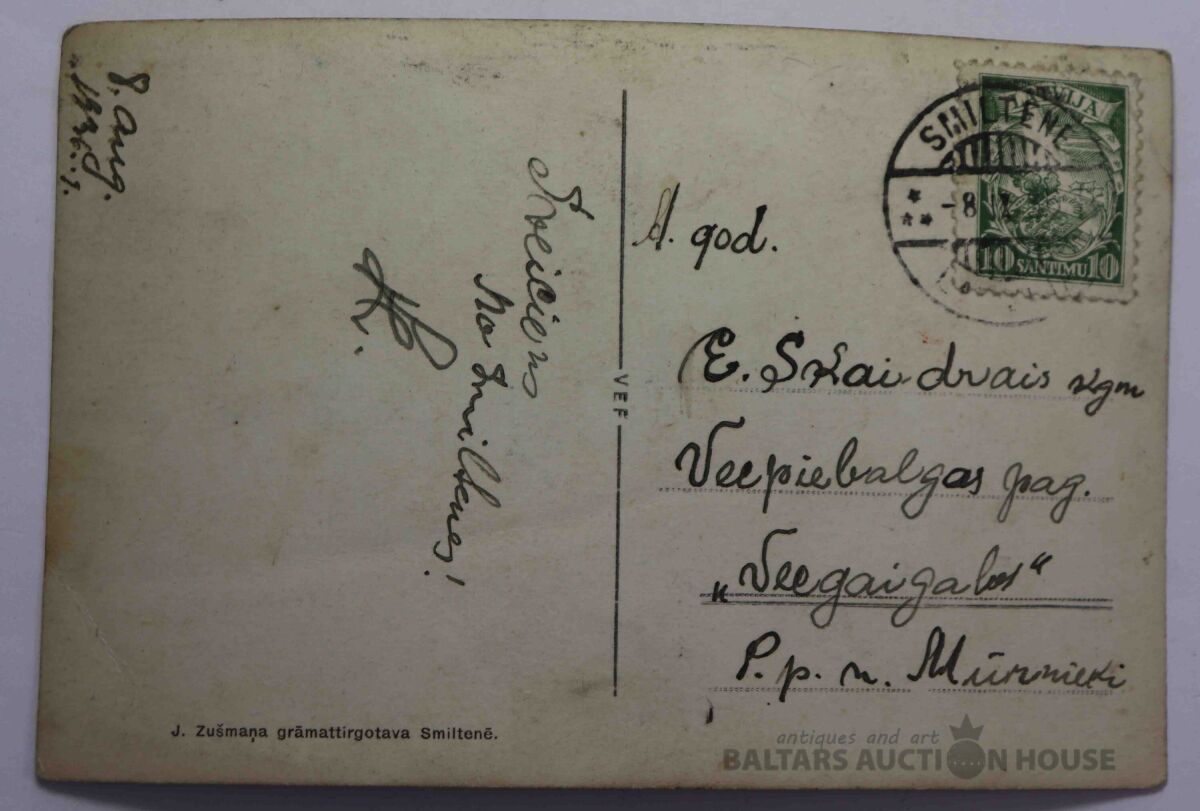 8. aug.
Sveiciens
no Smiltenes!
K.
J. Zušmaņa grāmattirgotava Smiltenē.
VEF
LATVIJA
10 SANTIMU 10
SMILTENE
-8
A. god.
E. Skaidrais kgm
Vecpiebalgas pag.
„Vecgaigalos"
P. p. n. Mūrnieki
antiques and art
BALTARS AUCTION HOUSE